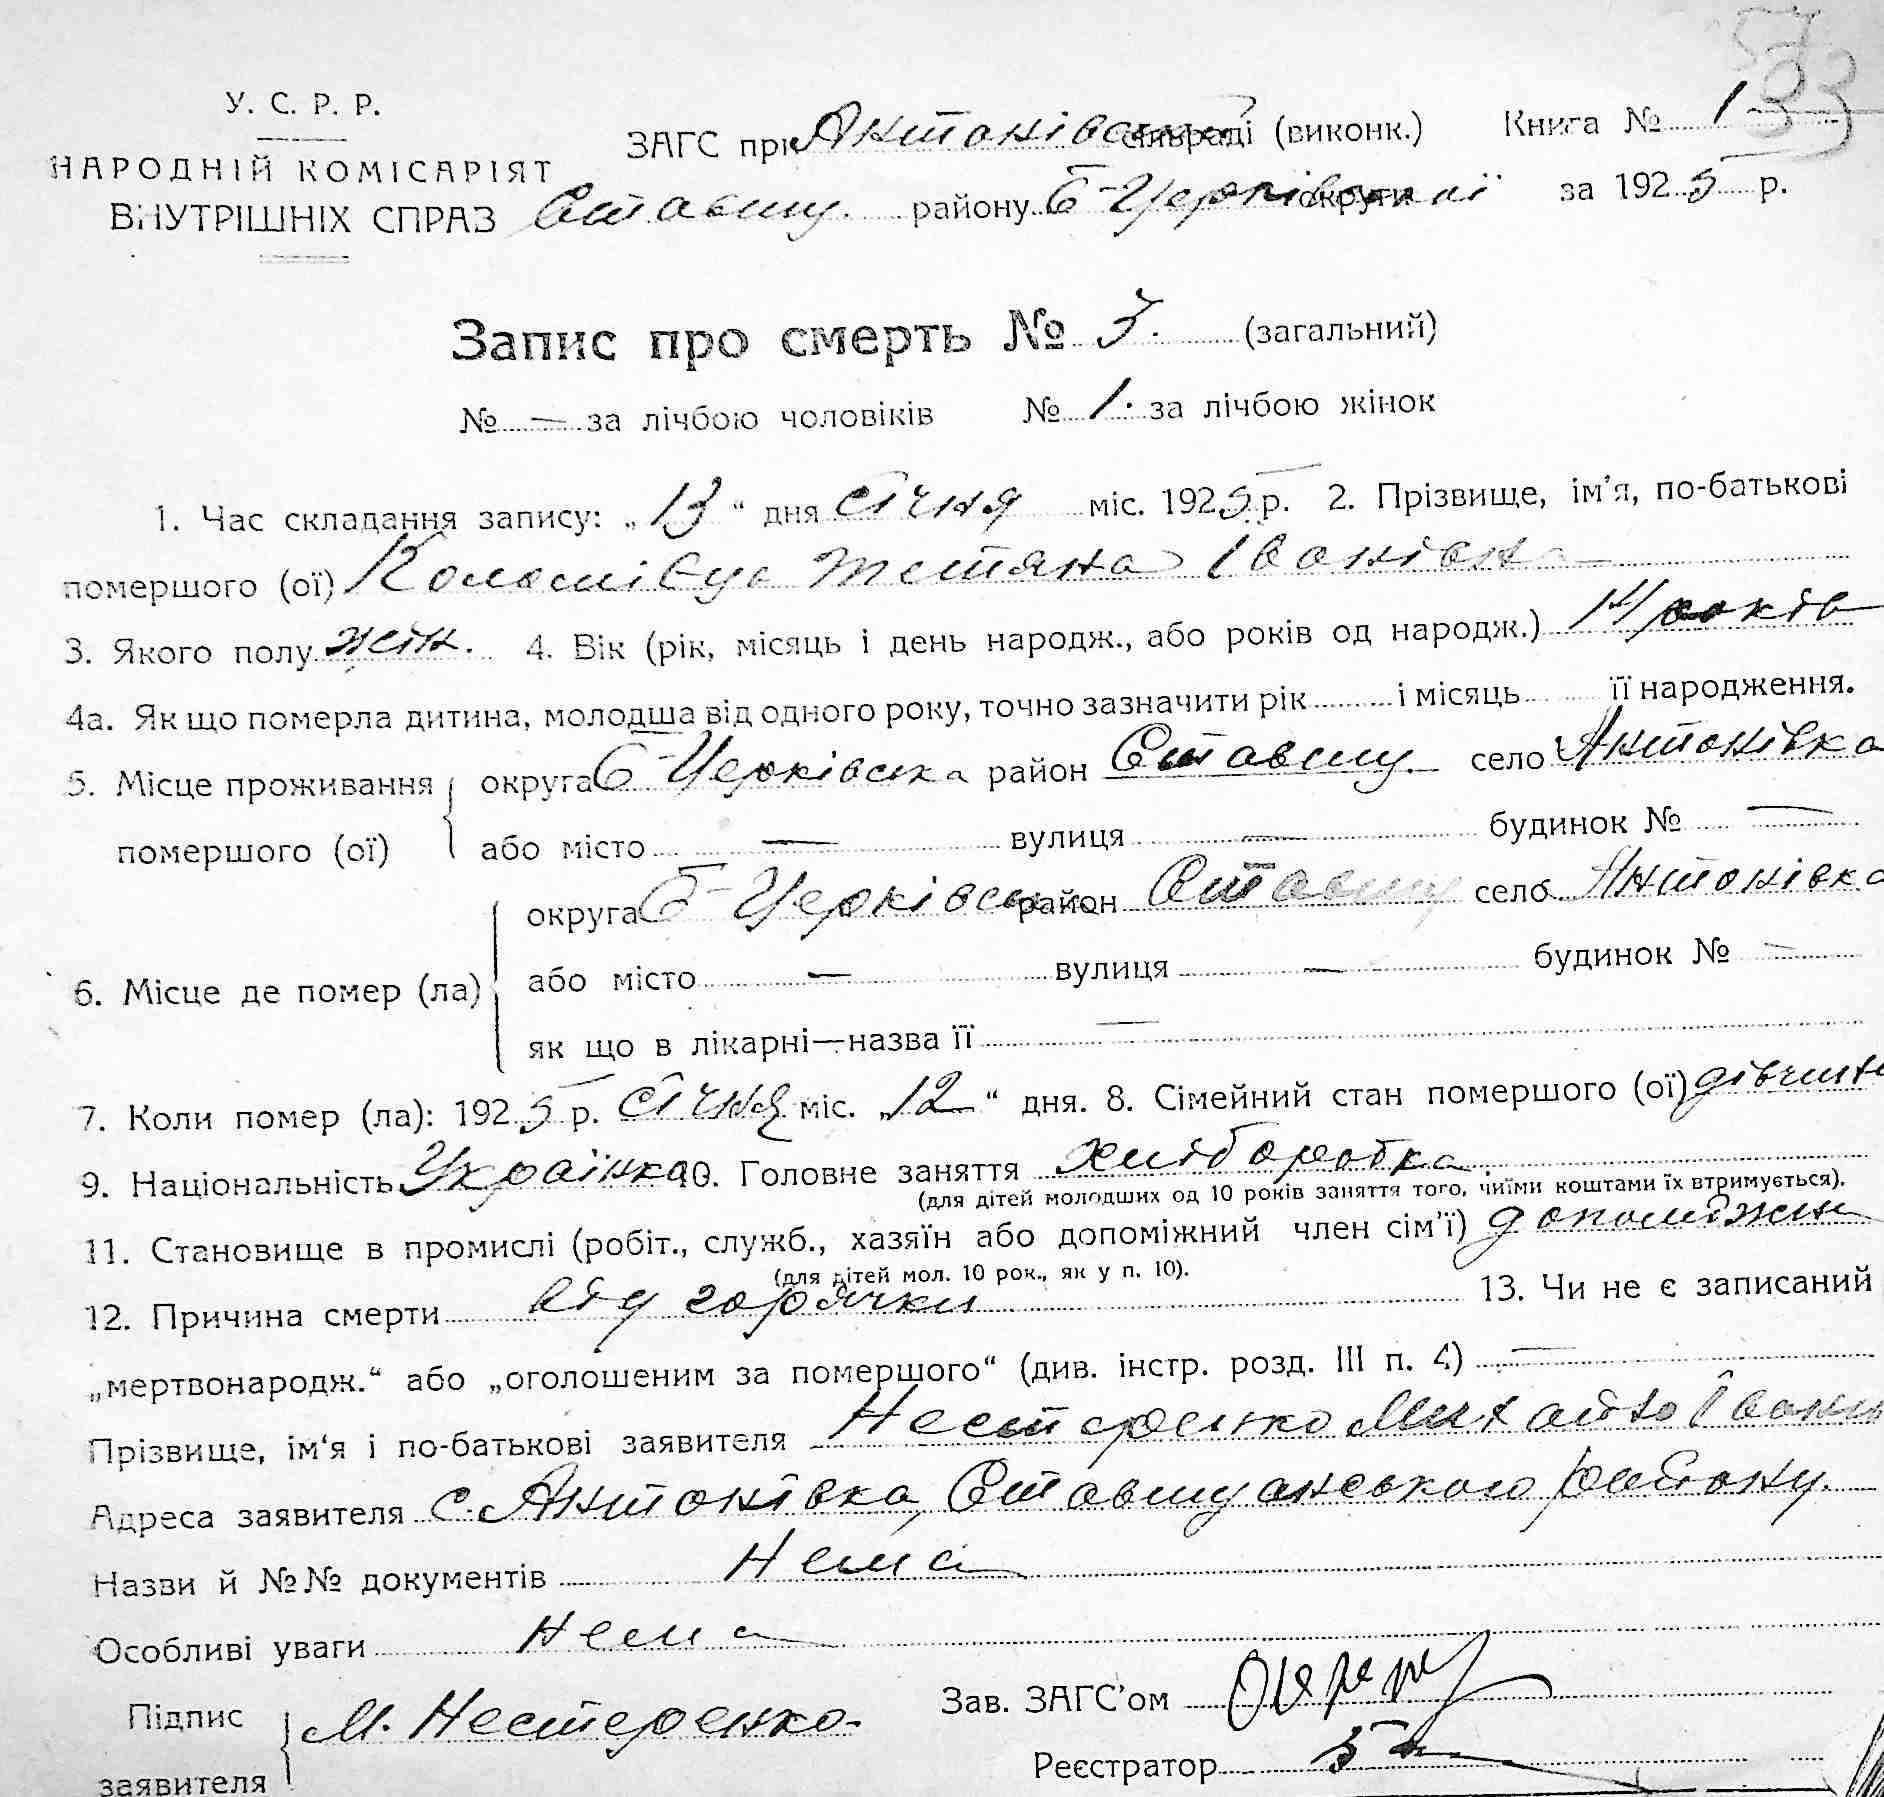 У. С. Р. Р.
НАРОДНІЙ КОМІСАРІЯТ
ВНУТРІШНІХ СПРАВ
ЗАГС при Антонівській сільраді (виконк.) Книга № 1
Ставищ. району Б-Церківської округи за 1925 р.
Запис про смерть № 3. (загальний)
№ — за лічбою чоловіків № 1. за лічбою жінок
1. Час складання запису: „13“ дня Січня міс. 1925 р. 2. Прізвище, ім'я, по-батькові
помершого (ої) Коломієць Тетяна Іванівна
3. Якого полу жін. 4. Вік (рік, місяць і день народж., або років од народж.) 14 років
4а. Як що померла дитина, молодша від одного року, точно зазначити рік і місяць її народження.
5. Місце проживання помершого (ої) округа Б-Церківська район Ставищ. село Антонівка
або місто — вулиця — будинок № —
6. Місце де помер (ла) округа Б-Церківська район Ставищ село Антонівка
або місто — вулиця — будинок № —
як що в лікарні—назва її —
7. Коли помер (ла): 1925 р. Січня міс. „12“ дня. 8. Сімейний стан помершого (ої) дівчина
9. Національність Українка 10. Головне заняття хліборобка.
(для дітей молодших од 10 років заняття того, чиїми коштами їх втримується).
11. Становище в промислі (робіт., служб., хазяїн або допоміжний член сім'ї) допоміжн
(для дітей мол. 10 рок., як у п. 10).
12. Причина смерти від горячки 13. Чи не є записаний
„мертвонародж.“ або „оголошеним за помершого“ (див. інстр. розд. III п. 4) —
Прізвище, ім'я і по-батькові заявителя Нестеренко Михайло Іванов
Адреса заявителя с. Антонівка, Ставищанського району.
Назви й №№ документів Нема
Особливі уваги Нема
Підпис заявителя М. Нестеренко
Зав. ЗАГС'ом
Реєстратор